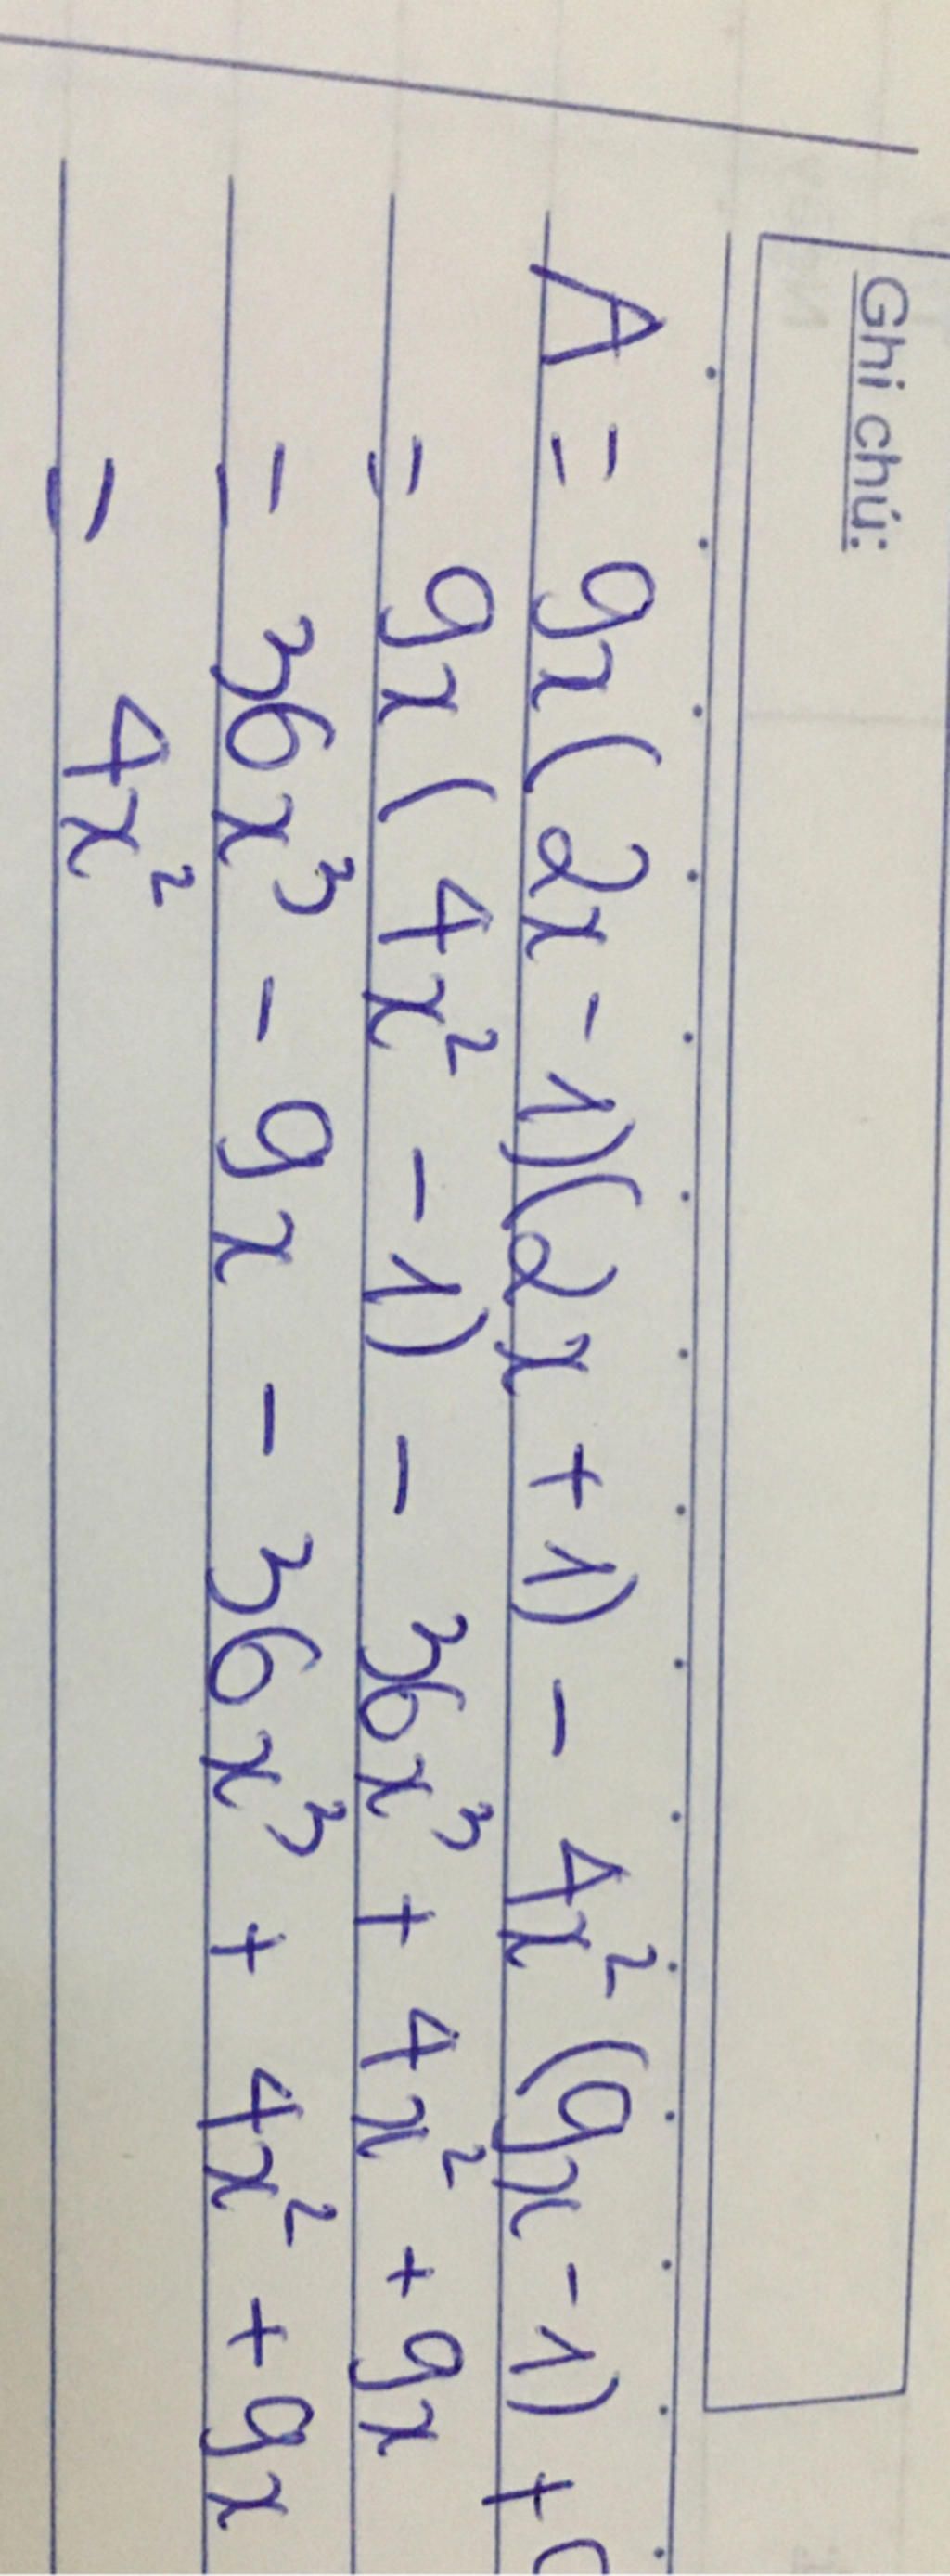 Ghi chú:
A = 9x(2x - 1)(2x + 1) - 4x² (9x - 1) +
= 9x (4x² - 1) - 36x³ + 4x² + 9x
= 36x³ - 9x - 36x³ + 4x² + 9x
= 4x²